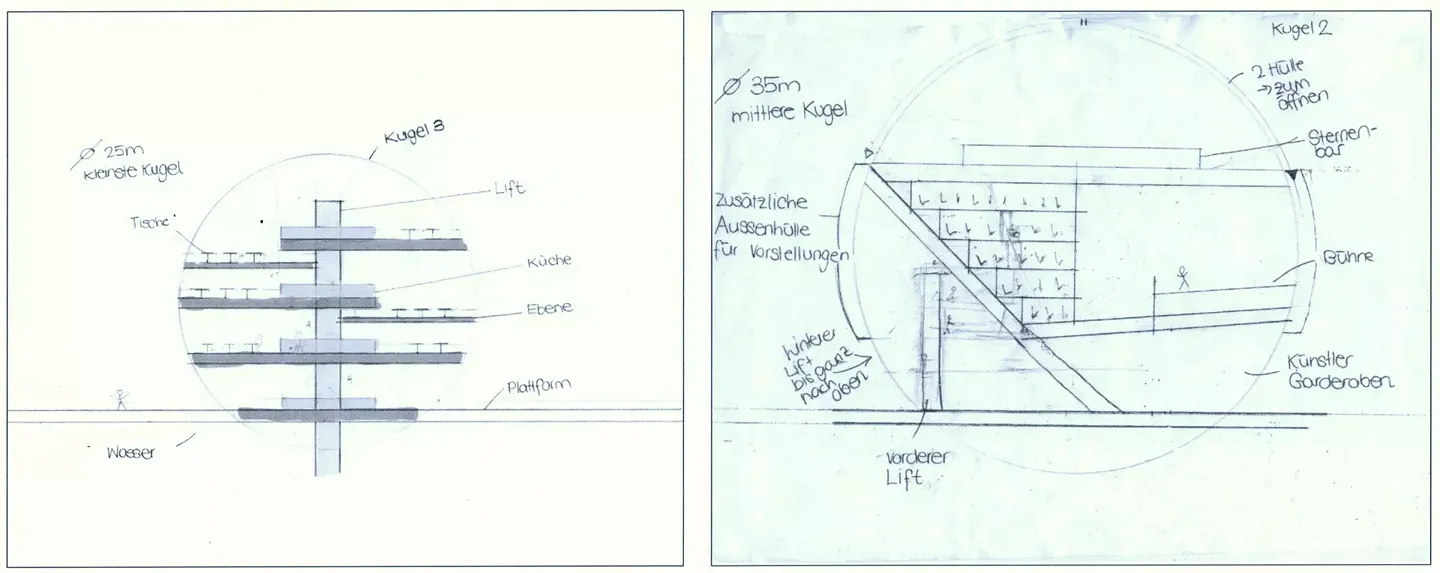 Kugel 3
Ø 25m
kleinste Kugel
Lift
Tische
Küche
Ebene
Plattform
Wasser
Kugel 2
Ø 35m
mittlere Kugel
2 Hülle
→ zum
öffnen
Sternen-
bar
Zusätzliche
Aussenhülle
für Vorstellungen
Bühne
hinterer
Lift
bis ganz
nach
oben
Künstler
Garderoben
vorderer
Lift